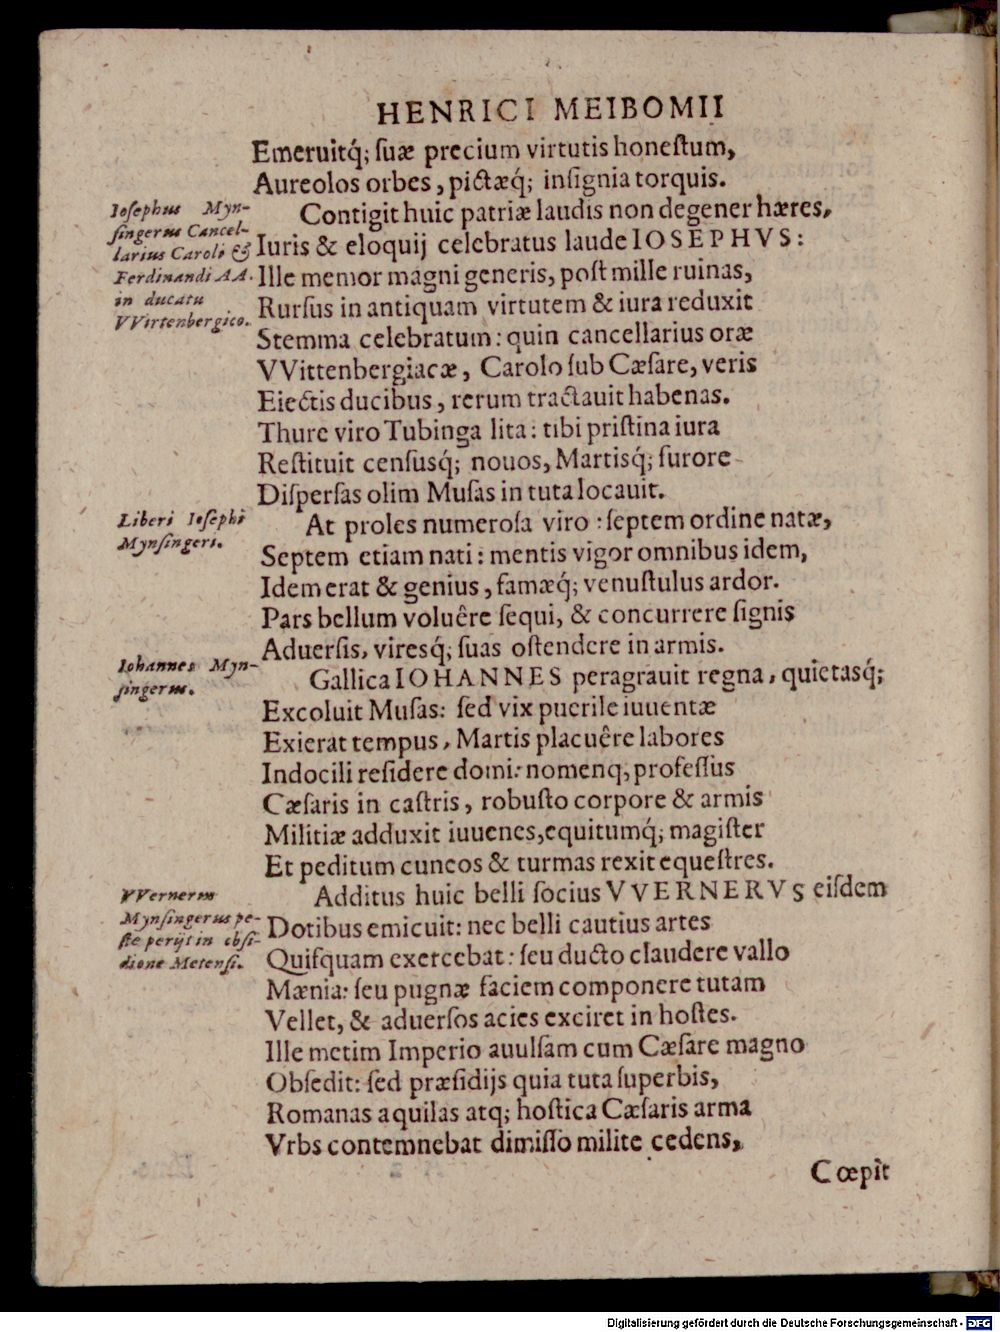 HENRICI MEIBOMII
Emeruitq́; ſuæ precium virtutis honeſtum,
Aureolos orbes, pictæq́; inſignia torquis.
Ioſephus Myn-
ſingerus Cancel-
larius Caroli &
Ferdinandi AA.
in ducatu
VVirtenbergico.
Contigit huic patriæ laudis non degener hæres,
Iuris & eloquij celebratus laude IOSEPHVS:
Ille memor magni generis, poſt mille ruinas,
Rurſus in antiquam virtutem & iura reduxit
Stemma celebratum: quin cancellarius oræ
VVittenbergiacæ, Carolo ſub Cæſare, veris
Eiectis ducibus, rerum tractauit habenas.
Thure viro Tubinga lita: tibi priſtina iura
Reſtituit cenſusq́; nouos, Martisq́; furore
Diſperſas olim Muſas in tuta locauit.
Liberi Ioſephi
Mynſingeri.
At proles numeroſa viro: ſeptem ordine natæ,
Septem etiam nati: mentis vigor omnibus idem,
Idem erat & genius, famæq́; venuſtulus ardor.
Pars bellum voluêre ſequi, & concurrere ſignis
Aduerſis, viresq́; ſuas oſtendere in armis.
Iohannes Myn-
ſingerus.
Gallica IOHANNES peragrauit regna, quietasq́;
Excoluit Muſas: ſed vix puerile iuuentæ
Exierat tempus, Martis placuêre labores
Indocili reſidere domi: nomenq, profeſſus
Cæſaris in caſtris, robuſto corpore & armis
Militiæ adduxit iuuenes, equitumq́; magiſter
Et peditum cuneos & turmas rexit equeſtres.
VVernerus
Mynſingerus pe-
ſte perijt in obſi-
dione Metenſi.
Additus huic belli ſocius VVERNERVS eiſdem
Dotibus emicuit: nec belli cautius artes
Quiſquam exercebat: ſeu ducto claudere vallo
Mænia: ſeu pugnæ faciem componere tutam
Vellet, & aduerſos acies exciret in hoſtes.
Ille metim Imperio auulſam cum Cæſare magno
Obſedit: ſed præſidijs quia tuta ſuperbis,
Romanas aquilas atq; hoſtica Cæſaris arma
Vrbs contemnebat dimiſſo milite cedens,
Cœpit
Digitalisierung gefördert durch die Deutsche Forschungsgemeinschaft - DFG